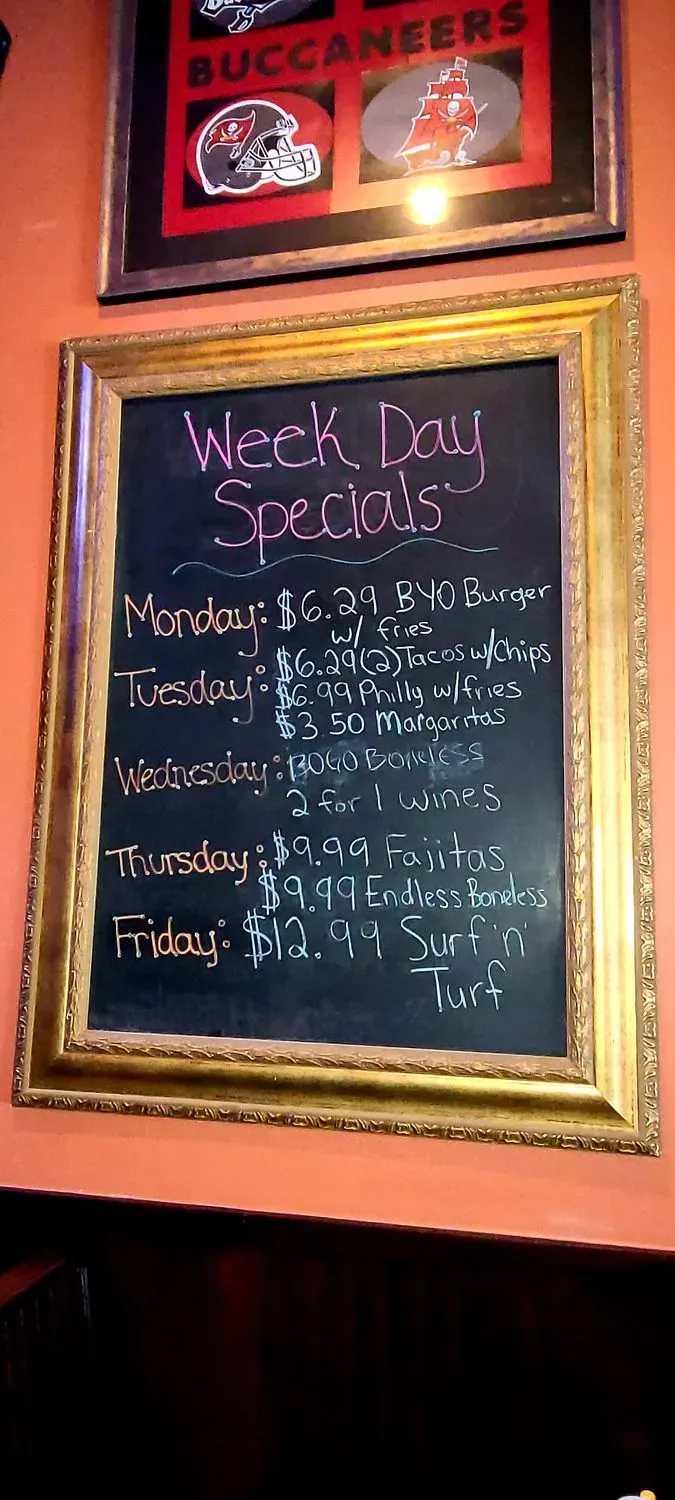 BUCCANEERS
Week Day
Specials
Monday: $6.29 BYO Burger
w/ fries
Tuesday: $6.29 (2) Tacos w/Chips
$6.99 Philly w/fries
$3.50 Margaritas
Wednesday: BOGO Boneless
2 for 1 wines
Thursday: $9.99 Fajitas
$9.99 Endless Boneless
Friday: $12.99 Surf 'n'
Turf